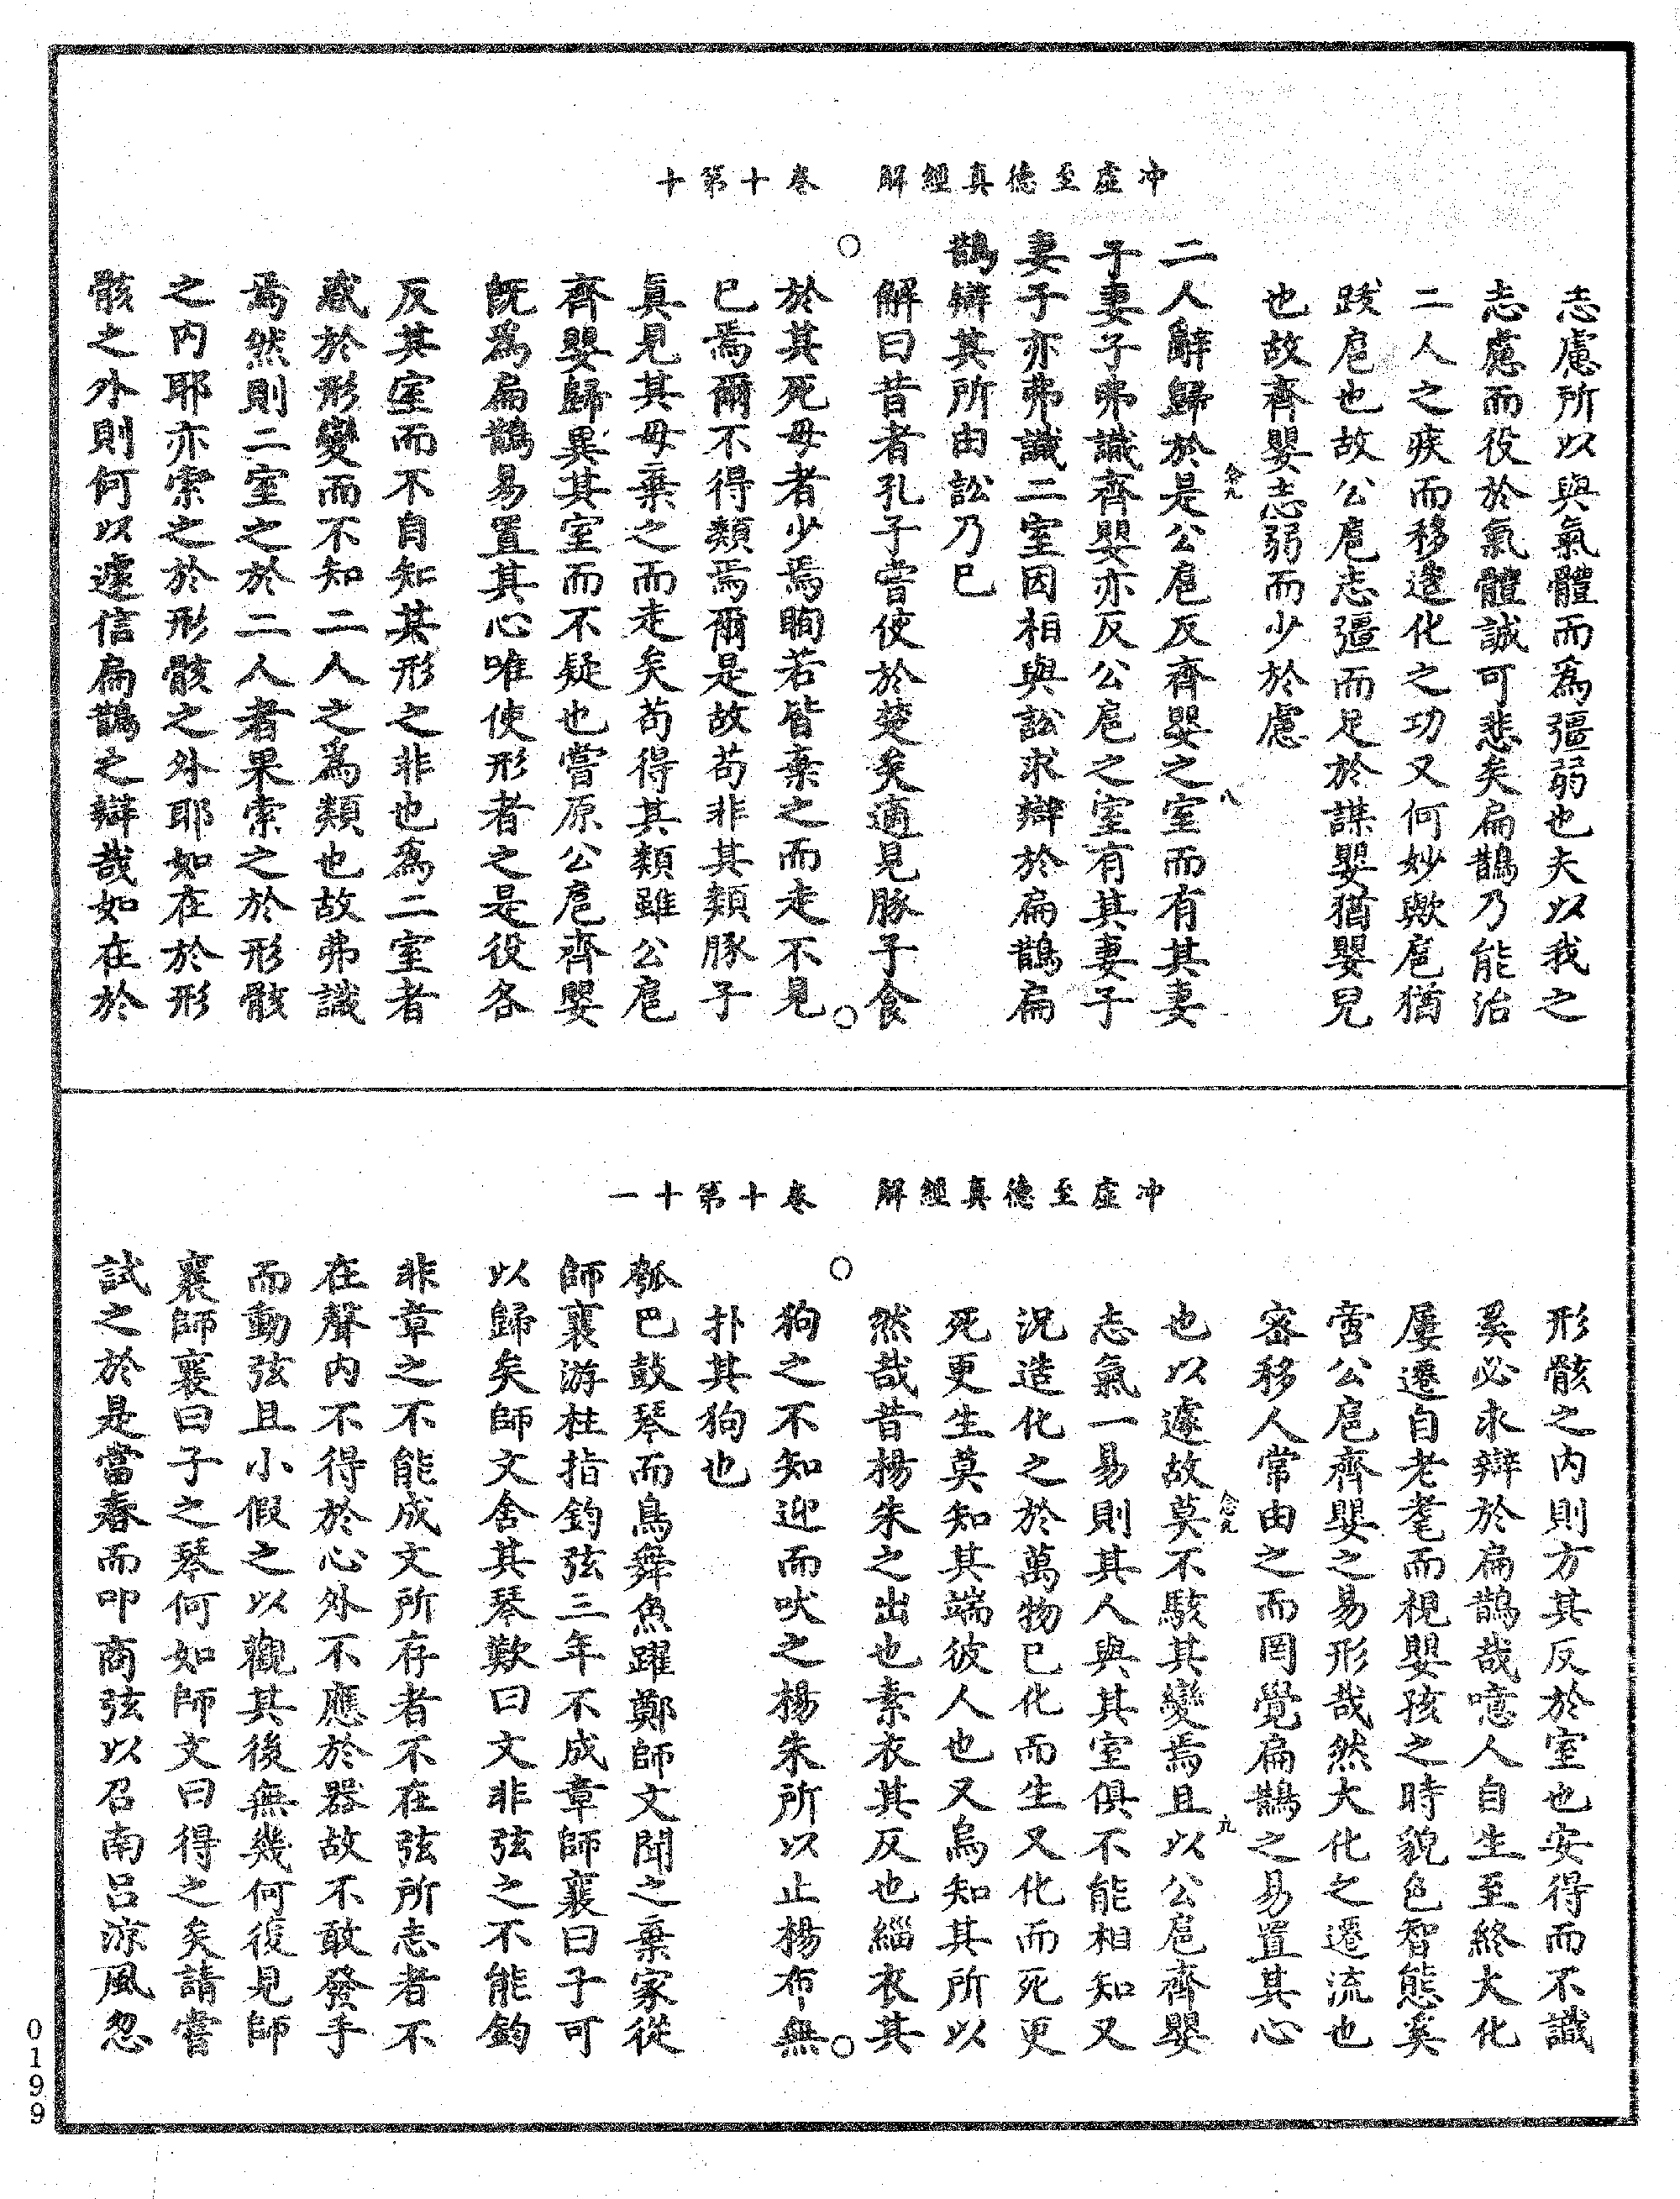 冲虛至德真經解　卷十第十
志慮所以與氣體而爲彊弱也夫以我之
志慮而役於氣體誠可悲矣扁鵲乃能治
二人之疾而移造化之功又何妙歟扈猶
跋扈也故公扈志彊而足於謀嬰猶嬰兒
也故齊嬰志弱而少於慮
念九
八
二人辭歸於是公扈反齊嬰之室而有其妻
子妻子弗識齊嬰亦反公扈之室有其妻子
妻子亦弗識二室因相與訟求辯於扁鵲扁
鵲辯其所由訟乃已
解曰昔者孔子嘗使於楚矣適見㹠子食
於其死母者少焉眴若皆棄之而走不見
已焉爾不得類焉爾是故苟非其類㹠子
眞見其母棄之而走矣苟得其類雖公扈
齊嬰歸異其室而不疑也嘗原公扈齊嬰
旣爲扁鵲易置其心唯使形者之是役各
反其室而不自知其形之非也爲二室者
惑於形變而不知二人之爲類也故弗識
焉然則二室之於二人者果索之於形骸
之内耶亦索之於形骸之外耶如在於形
骸之外則何以遽信扁鵲之辯哉如在於
冲虛至德真經解　卷十第十一
形骸之内則方其反於室也安得而不識
奚必求辯於扁鵲哉噫人自生至終大化
屢遷自老耄而視嬰孩之時貌色智態奚
啻公扈齊嬰之易形哉然大化之遷流也
密移人常由之而罔覺扁鵲之易置其心
念九
九
也以遽故莫不駭其變焉且以公扈齊嬰
志氣一易則其人與其室俱不能相知又
況造化之於萬物已化而生又化而死更
死更生莫知其端彼人也又烏知其所以
然哉昔楊朱之出也素衣其反也緇衣其
狗之不知迎而吠之楊朱所以止楊布無
扑其狗也
瓠巴鼓琴而鳥舞魚躍鄭師文聞之棄家從
師襄游柱指鈞弦三年不成章師襄曰子可
以歸矣師文舍其琴歎曰文非弦之不能鈞
非章之不能成文所存者不在弦所志者不
在聲内不得於心外不應於器故不敢發手
而動弦且小假之以觀其後無幾何復見師
襄師襄曰子之琴何如師文曰得之矣請嘗
試之於是當春而叩商弦以召南呂涼風忽
0199